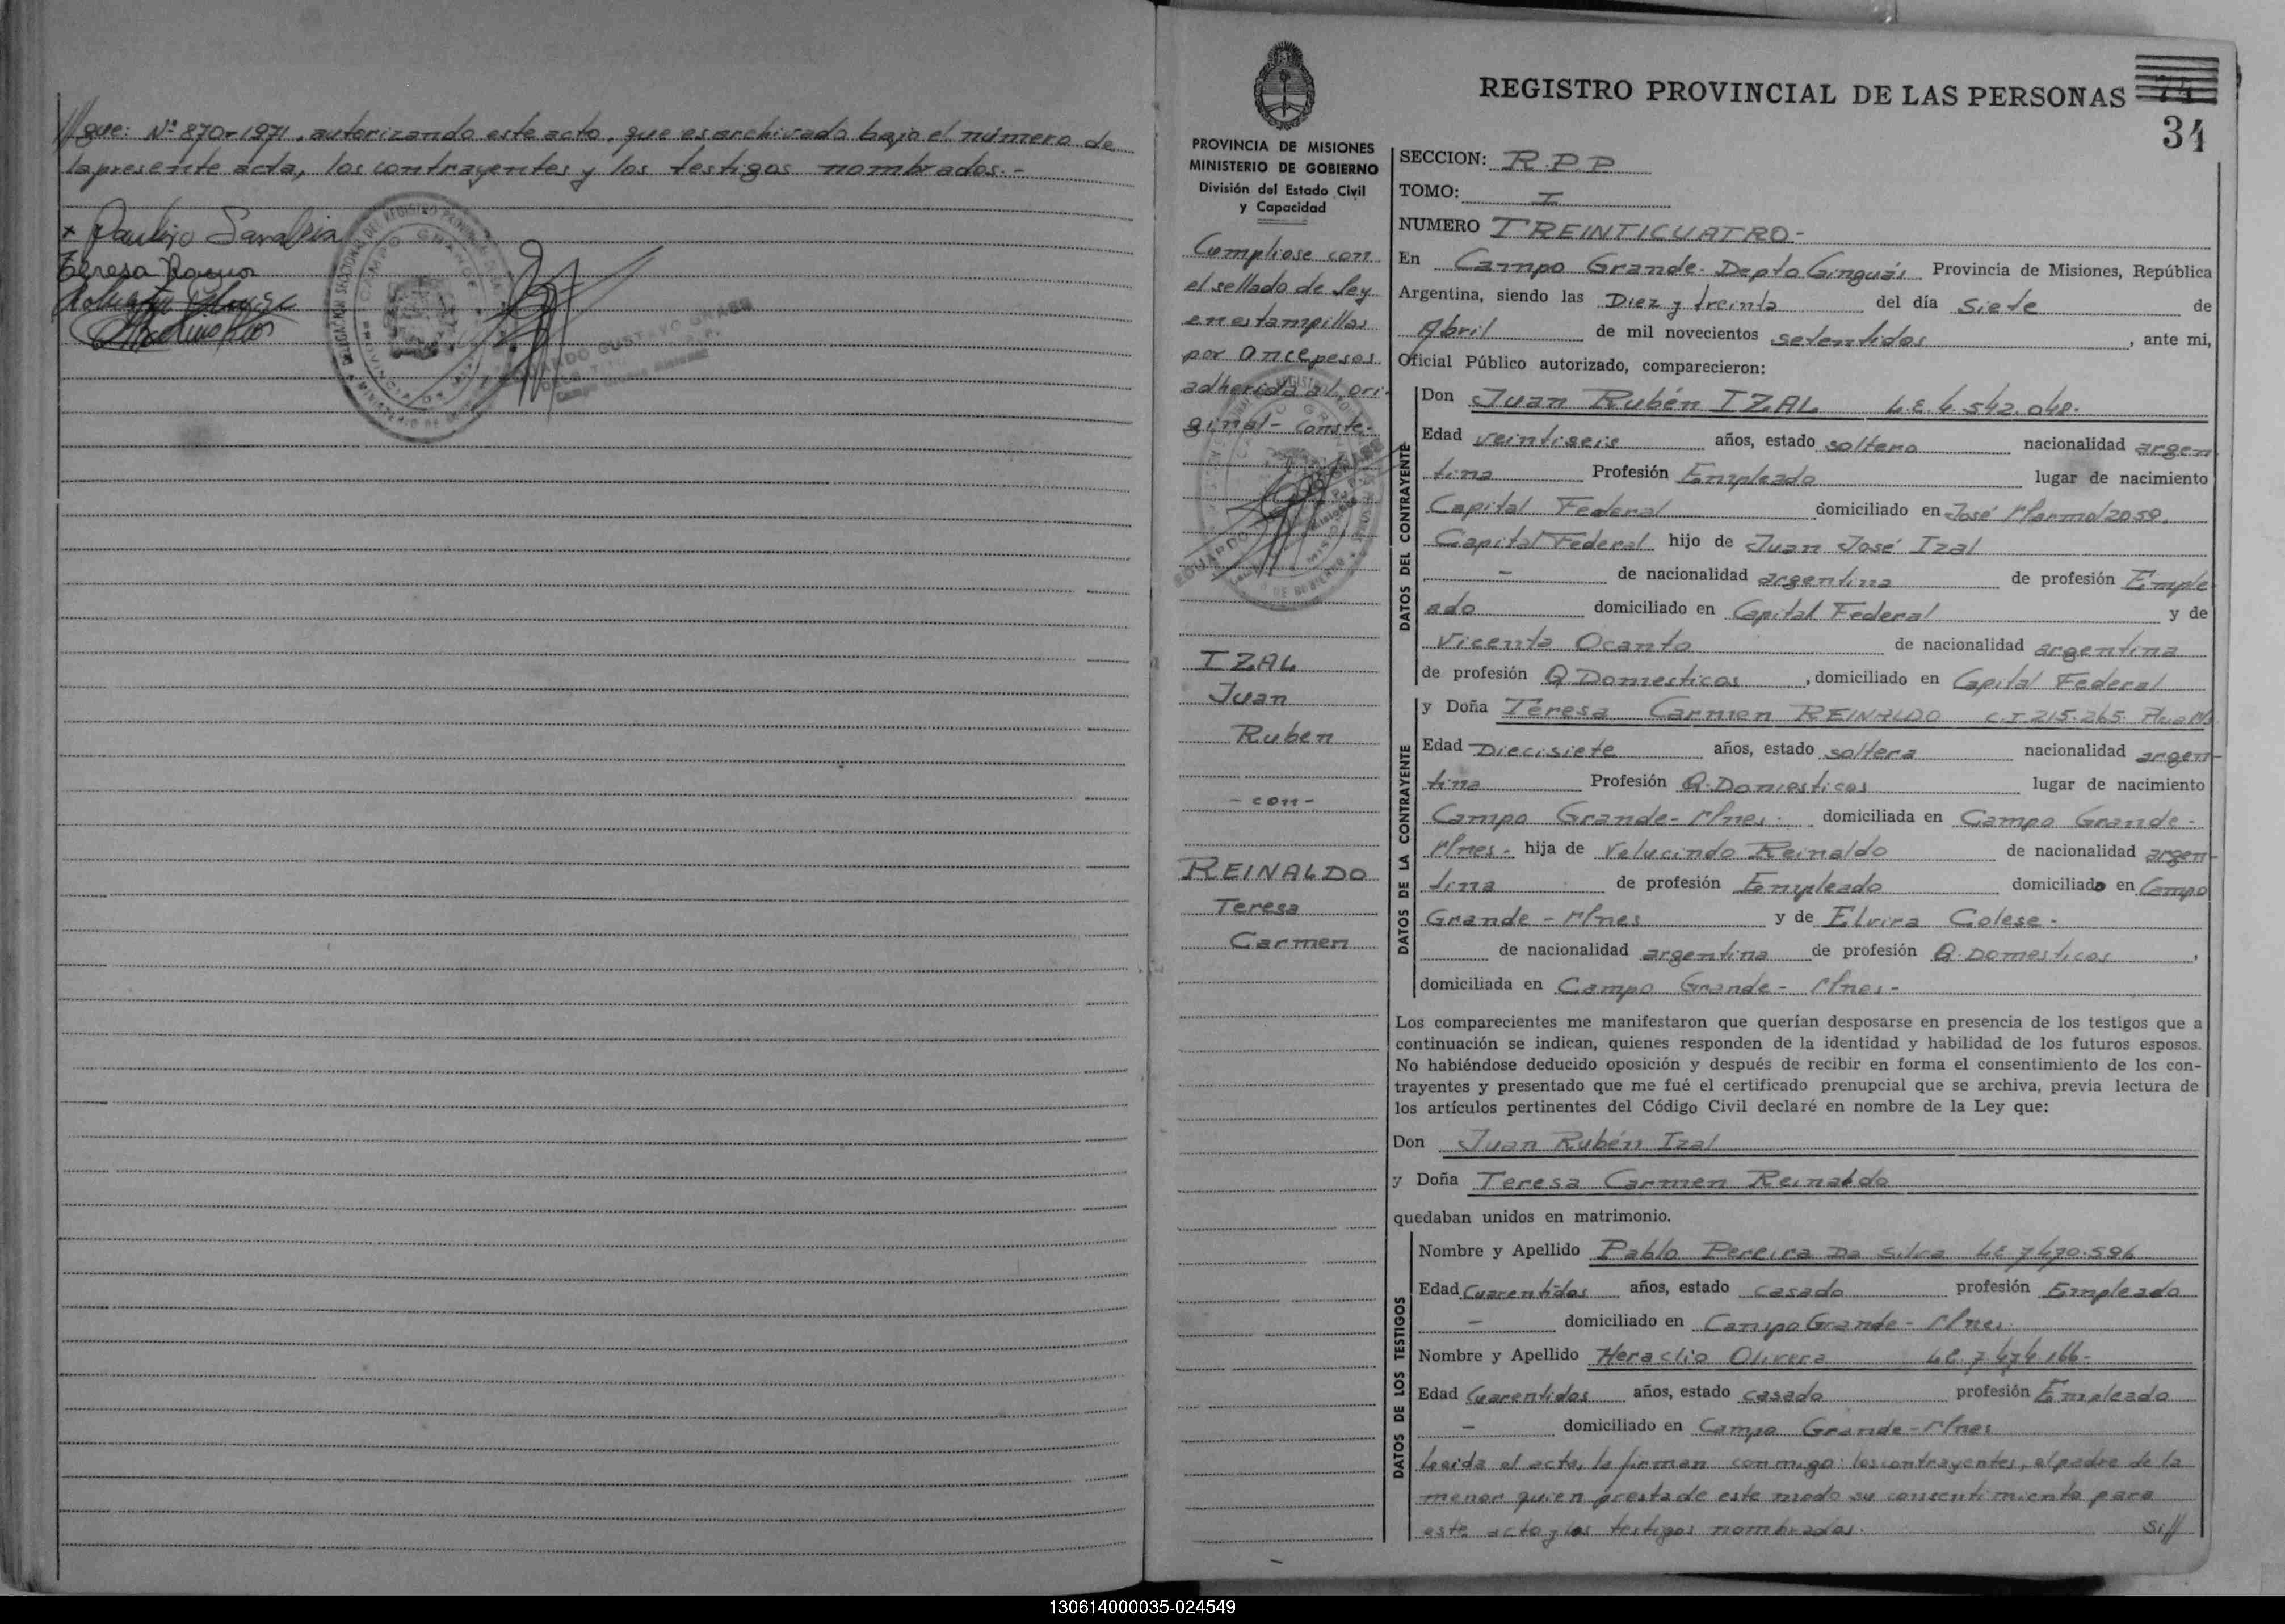 //gue: Nº 870-1971, autorizando este acto, que es archivado bajo el número de
la presente acta, los contrayentes y los testigos nombrados.-
REGISTRO PROVINCIAL DE LAS PERSONAS
34
PROVINCIA DE MISIONES
MINISTERIO DE GOBIERNO
División del Estado Civil
y Capacidad
Cumpliose con
el sellado de Ley
en estampillas
por once pesos
adherida al ori-
ginal - Conste.-
IZAL
Juan
Ruben
- con -
REINALDO
Teresa
Carmen
SECCION: R.P.P.
TOMO: I
NUMERO TREINTICUATRO-
En Campo Grande- Depto Cainguás Provincia de Misiones, República
Argentina, siendo las Diez y treinta del día siete de
Abril de mil novecientos setentidos, ante mi,
Oficial Público autorizado, comparecieron:
DATOS DEL CONTRAYENTE
Don Juan Rubén IZAL L.E. 4.542.048.
Edad veintiseis años, estado soltero nacionalidad argen
tina Profesión Empleado lugar de nacimiento
Capital Federal domiciliado en José Marmol 2059.
Capital Federal hijo de Juan José Izal
- de nacionalidad argentina de profesión Emple
ado domiciliado en Capital Federal y de
Vicenta Ocanto de nacionalidad argentina
de profesión Q Domesticos, domiciliado en Capital Federal
DATOS DE LA CONTRAYENTE
y Doña Teresa Carmen REINALDO C.I. 215.265
Edad Diecisiete años, estado soltera nacionalidad argen-
tina Profesión Q. Domesticos lugar de nacimiento
Campo Grande- Mnes. domiciliada en Campo Grande-
Mnes- hija de Velucindo Reinaldo de nacionalidad argen-
tina de profesión Empleado domiciliado en Campo
Grande - Mnes y de Elvira Colese-
de nacionalidad argentina de profesión Q. Domesticos,
domiciliada en Campo Grande- Mnes-
Los comparecientes me manifestaron que querían desposarse en presencia de los testigos que a
continuación se indican, quienes responden de la identidad y habilidad de los futuros esposos.
No habiéndose deducido oposición y después de recibir en forma el consentimiento de los con-
trayentes y presentado que me fué el certificado prenupcial que se archiva, previa lectura de
los artículos pertinentes del Código Civil declaré en nombre de la Ley que:
Don Juan Rubén Izal
y Doña Teresa Carmen Reinaldo
quedaban unidos en matrimonio.
DATOS DE LOS TESTIGOS
Nombre y Apellido Pablo Pereira Da Silva LE 7.470.596
Edad Cuarentidos años, estado casado profesión Empleado
- domiciliado en Campo Grande- Mnes.
Nombre y Apellido Heraclio Olivera LE. 7.474.166-
Edad Cuarentidos años, estado casado profesión Empleado
- domiciliado en Campo Grande- Mnes
Leida el acta, la firman conmigo: los contrayentes, el padre de la
menor quien presta de este modo su consentimiento para
este acto y los testigos nombrados. Si//
130614000035-024549